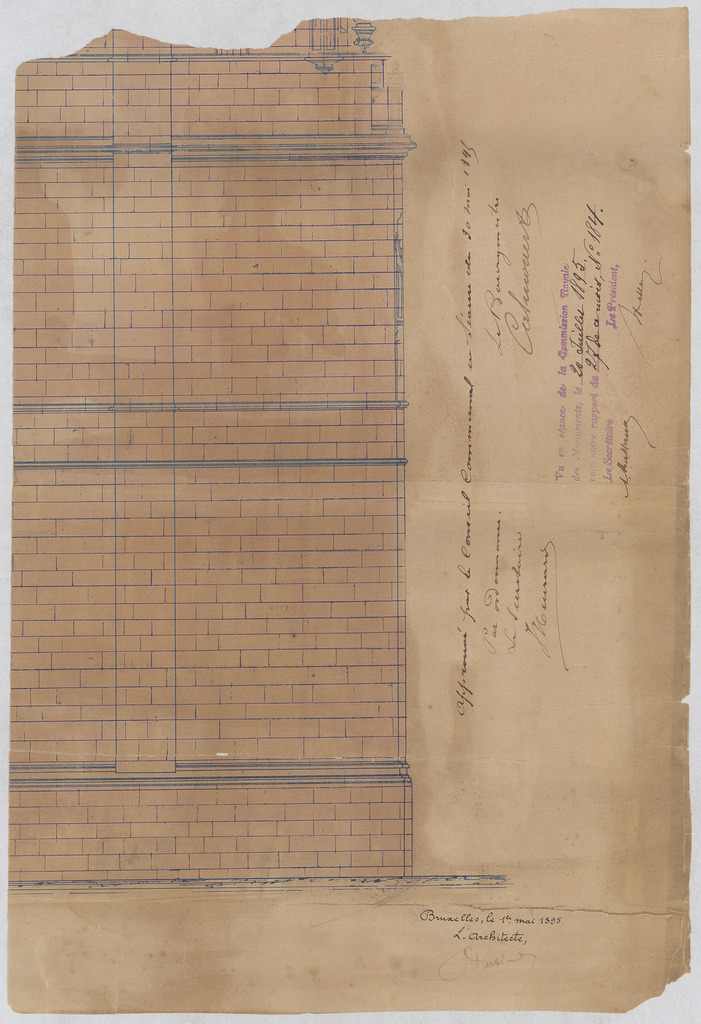 Approuvé par le Conseil Communal en séance du 30 mai 1895
Par ordonnance.
Le Secrétaire
Le Bourgmestre
Vu en séance de la Commission Royale
des Monuments, le 20 Juillet 1895.
voir notre rapport du 27 de ce mois, N° 184.
Le Secrétaire
Le Président,
Bruxelles, le 1er mai 1895.
L'Architecte,